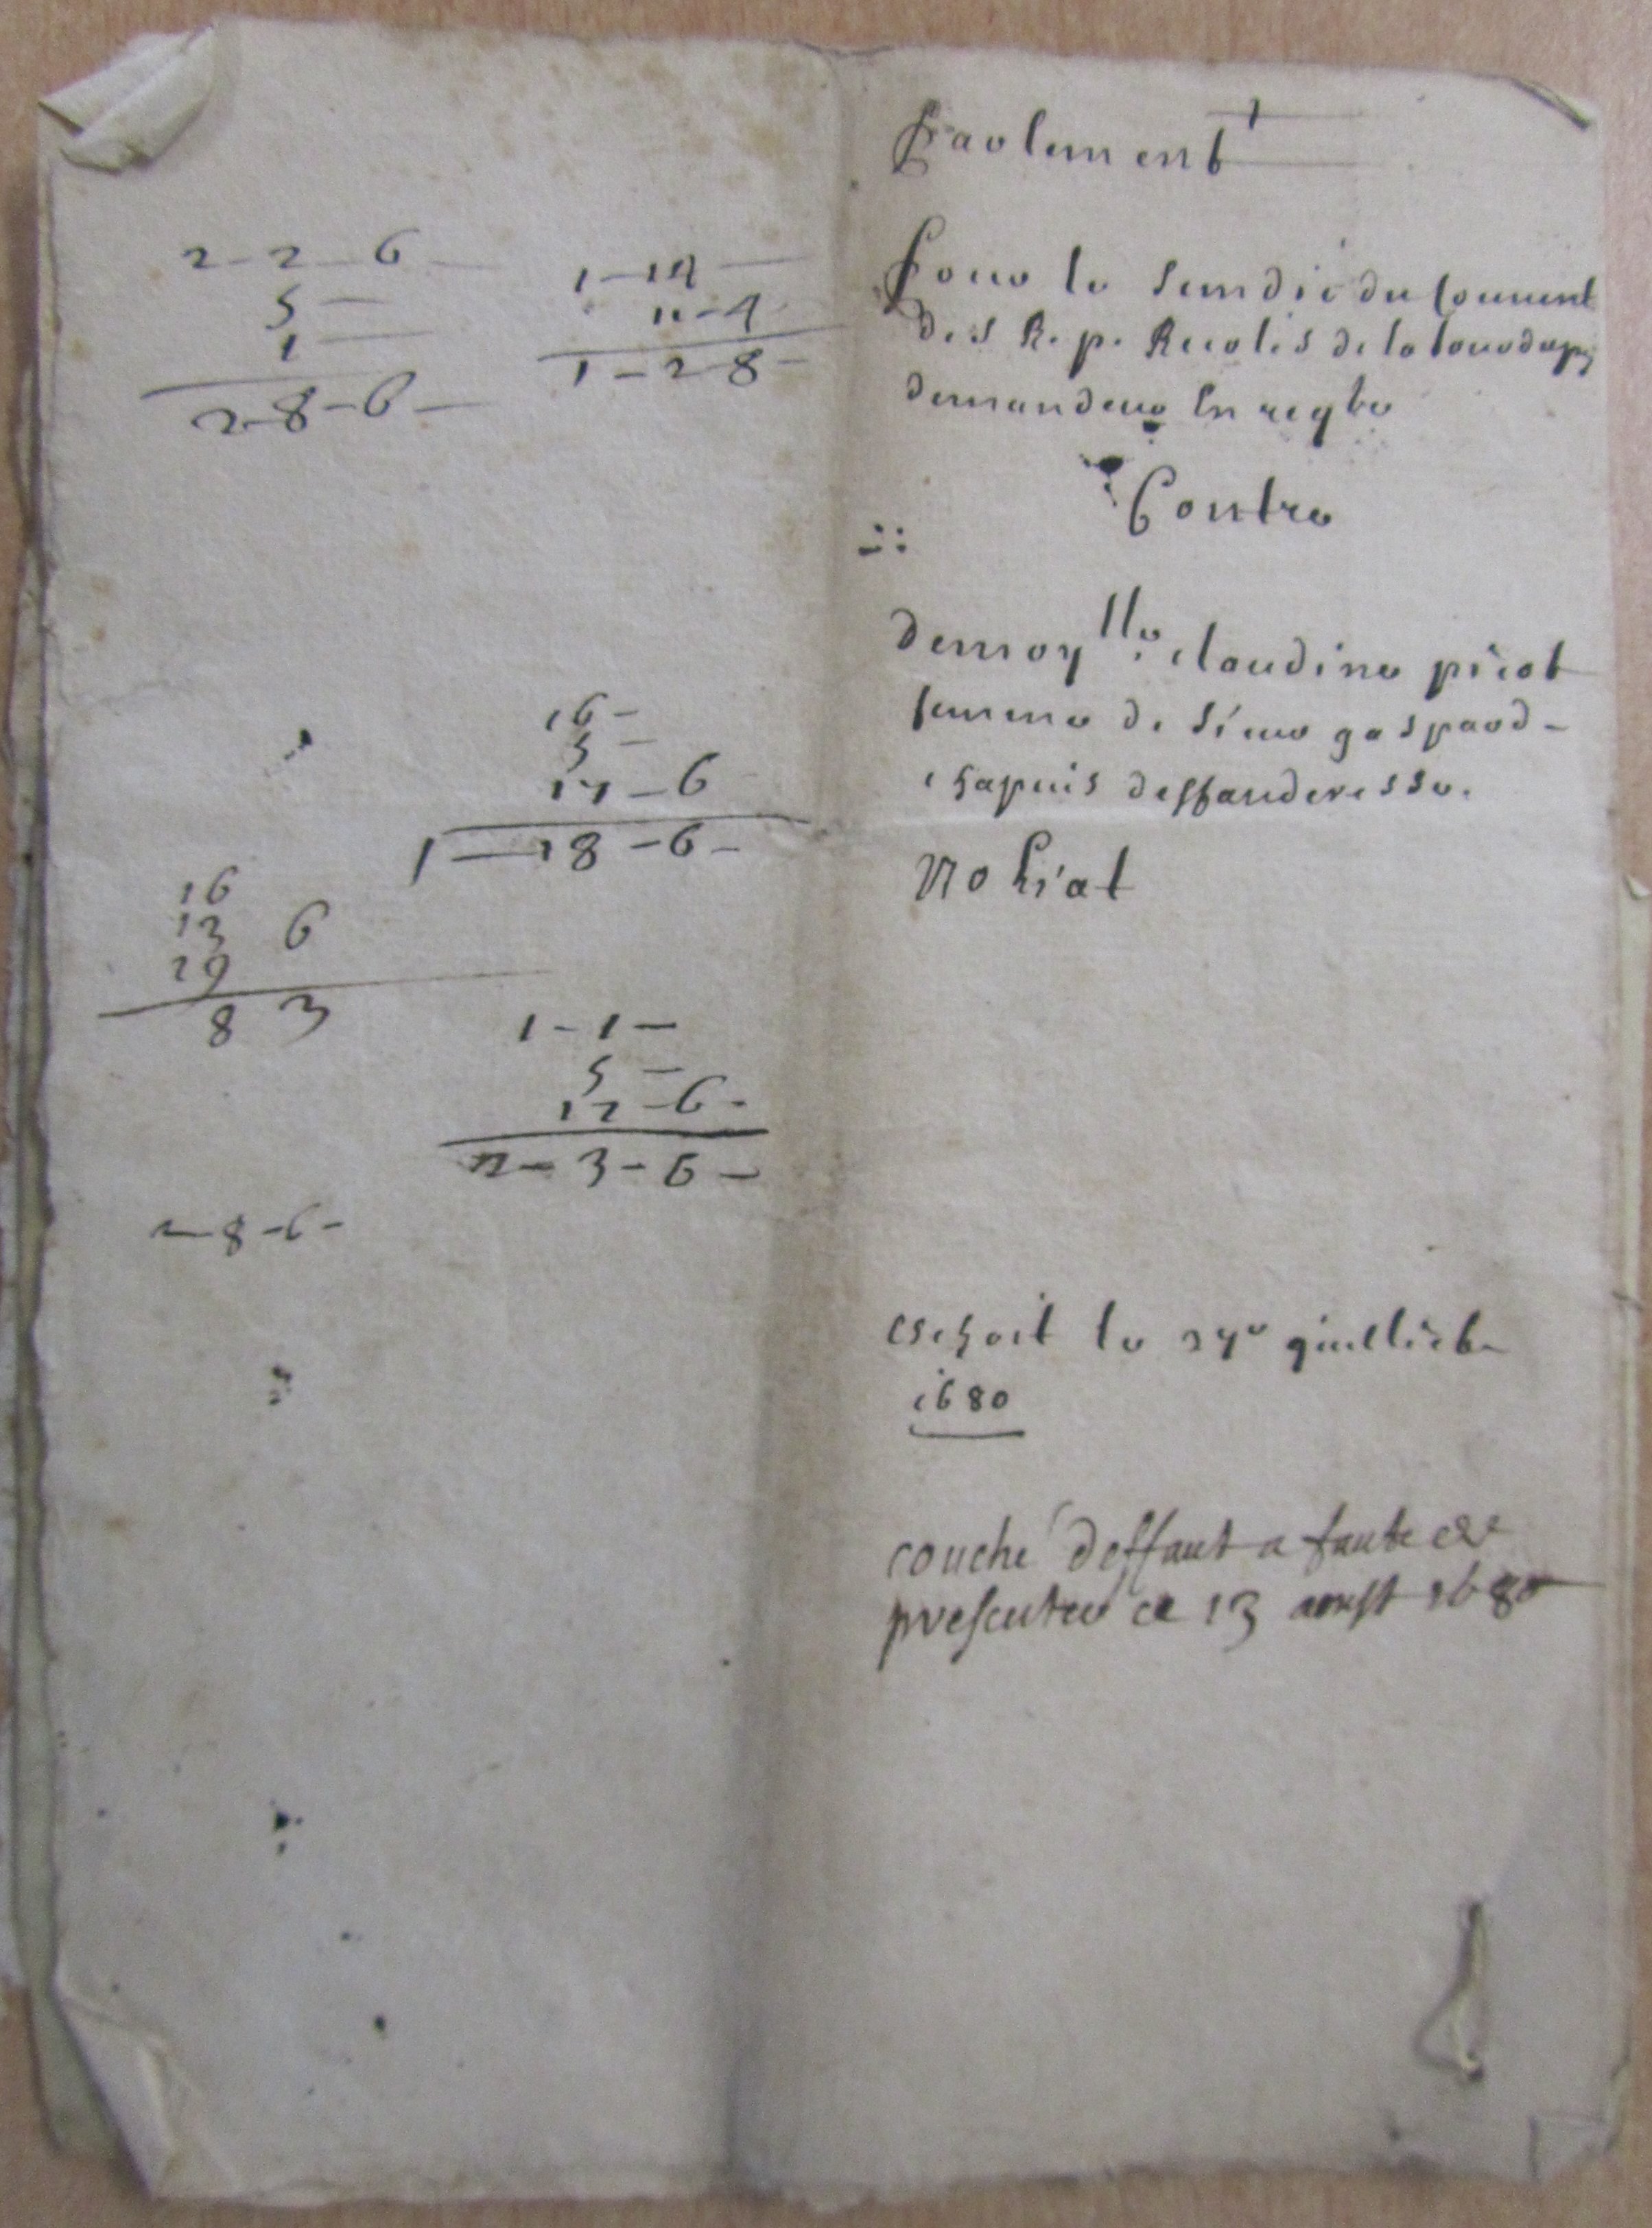 2 - 2 - 6 -
5 -
1 -
2 - 8 - 6 -
1 - 1
11 - 4
1 - 2 - 8 -
16 -
5 -
17 - 6
1 - 18 - 6 -
16
13 6
19
8 3
1 - 1 -
5 -
17 - 6 -
2 - 3 - 6 -
2 - 8 - 6 -
Parlement
Pour le sindic du couuent
des R. p. Recolés de la
demandeur en
Contre
demoy lle. claudine picot
femme de sieur gaspard -
chapuis deffanderesse.
eschoit le juilliet
1680
couché deffaut a faute de
presenter ce 13 aoust 1680